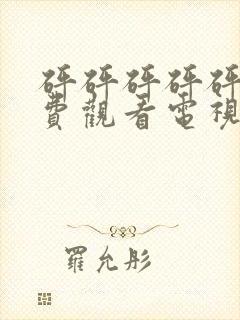 砰砰砰砰砰
費觀看電視
羅允彤